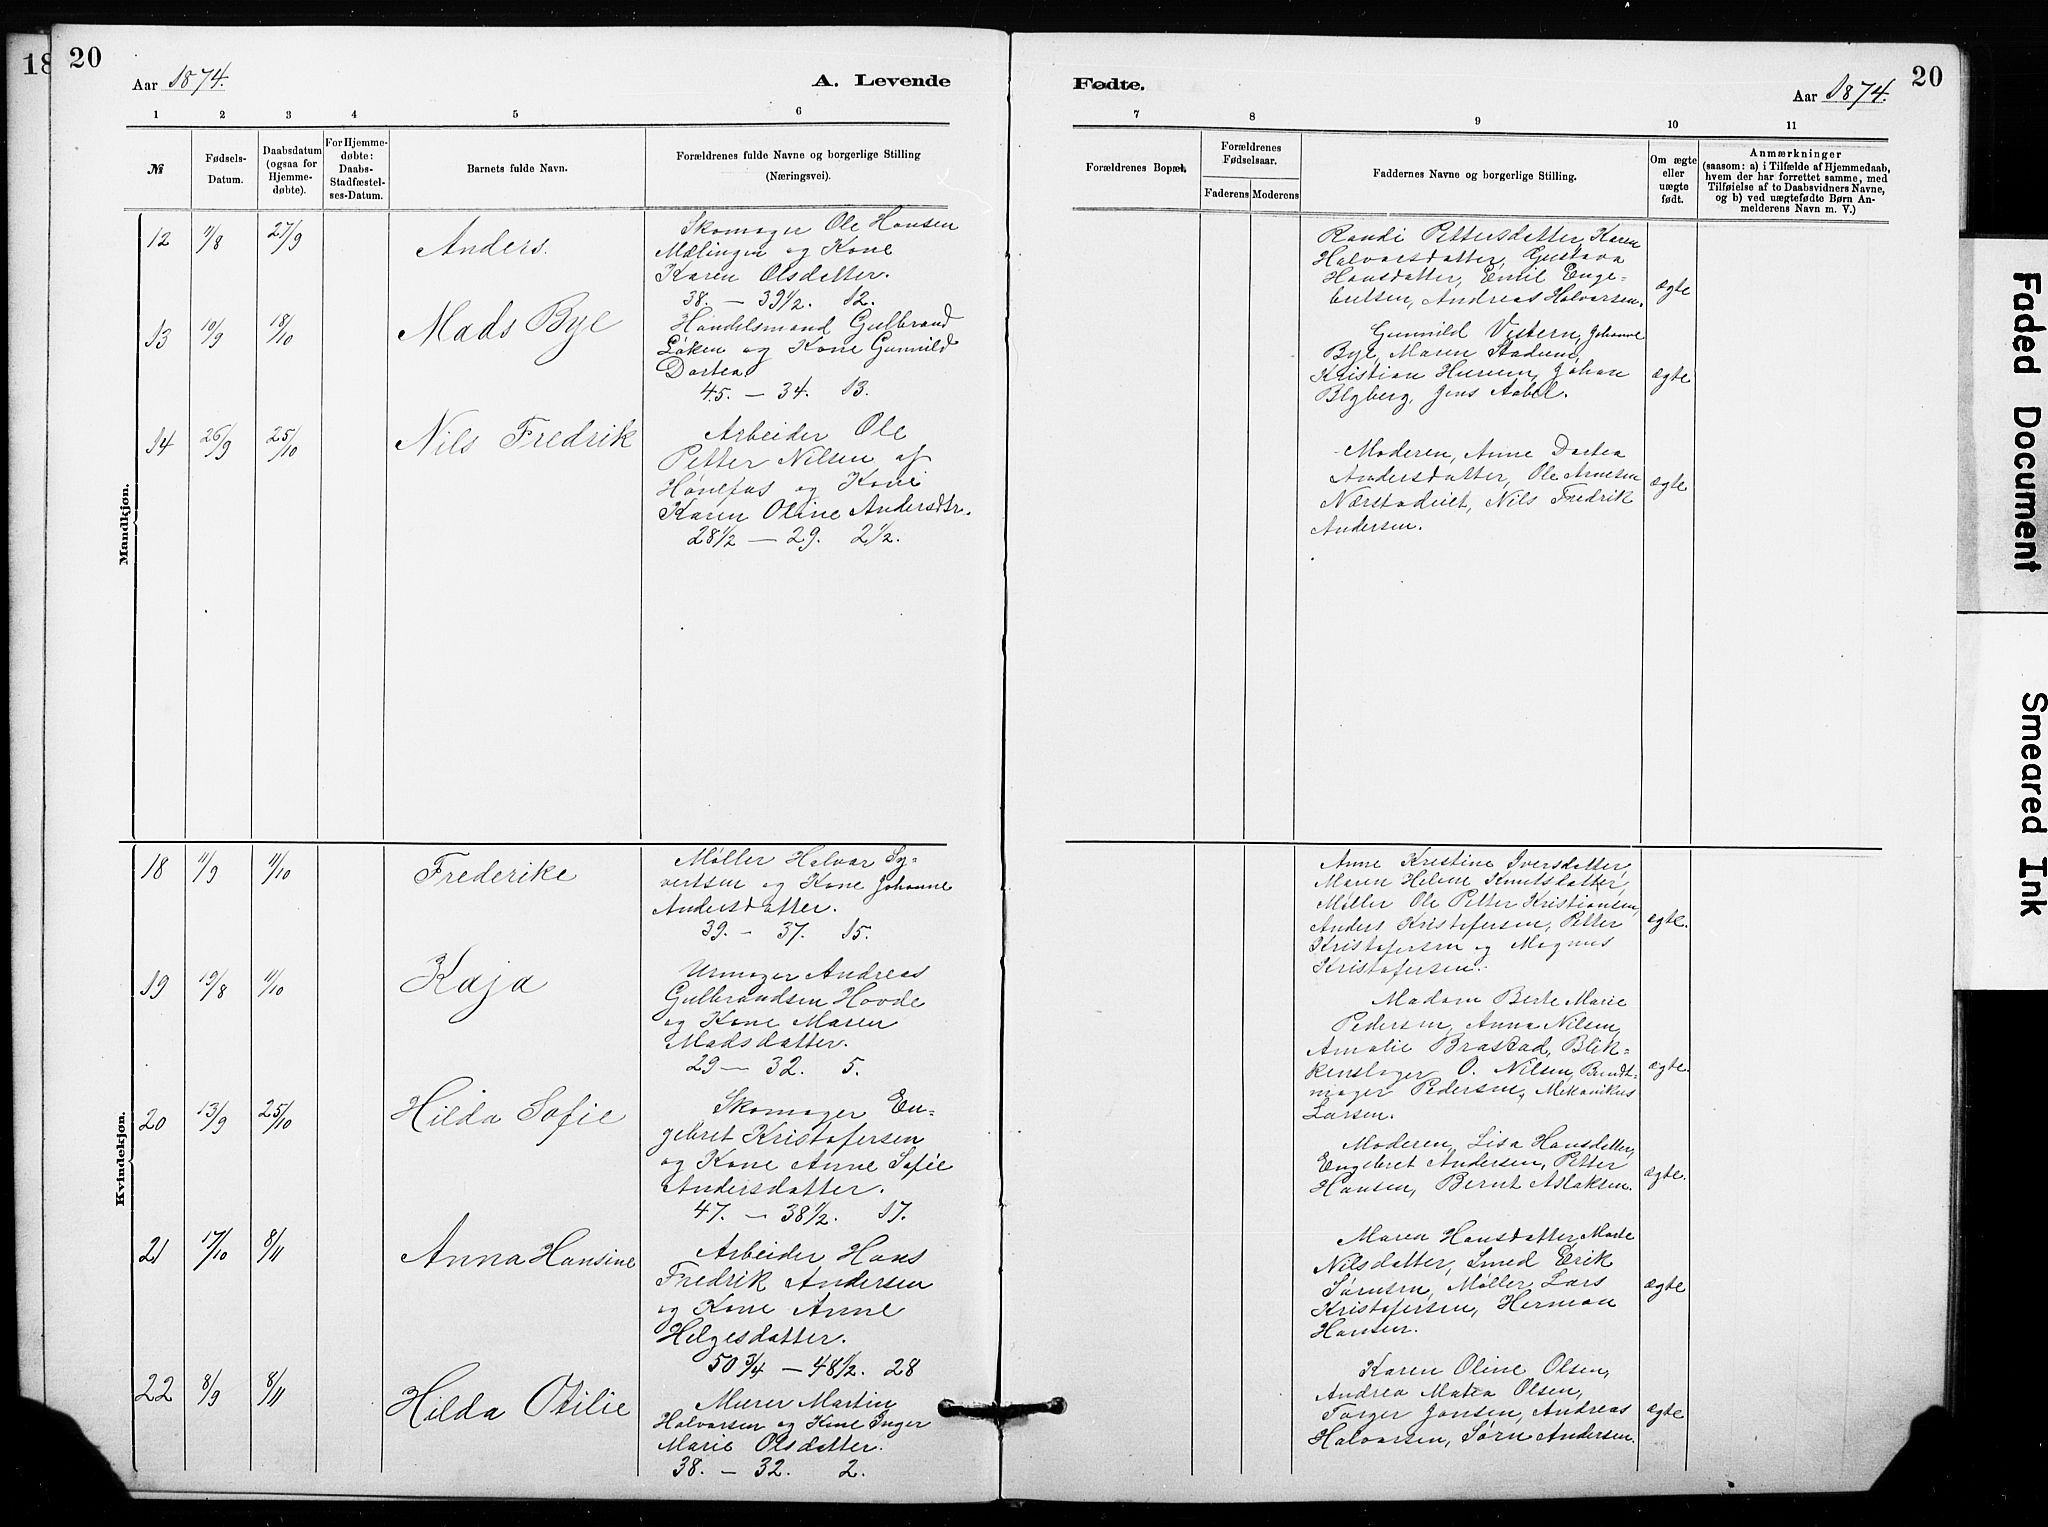 18
20
Aar 1874.
A. Levende
1 2 3 4 5 6
№
Fødsels-
Datum.
Daabsdatum
(ogsaa for
Hjemme-
døbte).
For Hjemme-
døbte:
Daabs-
Stadfæstel-
ses-Datum.
Barnets fulde Navn.
Forældrenes fulde Navne og borgerlige Stilling
(Næringsvei).
Mandkjøn.
12 11/8 27/9 Anders.
Skomager Ole Hansen
Mælingen og Kone
Karen Olsdatter.
38. — 39 1/2. 12.
13 10/9 18/10 Mads Bye
Handelsmand Gulbrand
Løken og Kone Gunnild
Dortea
45. — 34. 13.
14 26/9 25/10 Nils Fredrik
Arbeider Ole
Petter Nilsen af
Hønefos og Kone
Karen Oline Andersdtr.
28 1/2 — 29. 2 1/2.
Kvindekjøn.
18 11/9 11/10 Frederike
Møller Halvor Sy-
vertsen og Kone Johanne
Andersdatter.
39. — 37. 15.
19 19/8 11/10 Kaja
Urmager Andreas
Gulbrandsen Hovde
og Kone Maren
Madsdatter.
29 — 32. 5.
20 13/9 25/10 Hilda Sofie
Skomager En-
gebret Kristofersen
og Kone Anne Sofie
Andersdatter.
47. — 38 1/2. 17.
21 17/10 8/11 Anna Hansine
Arbeider Hans
Fredrik Andersen
og Kone Anne
Helgesdatter.
50 3/4 — 48 1/2. 28
22 8/9 8/11 Hilda Otilie
Murer Martin
Halvorsen og Kone Inger
Marie Olsdatter.
38. — 32. 2.
Fødte.
Aar 1874.
20
7 8 9 10 11
Forældrenes Bopæl.
Forældrenes
Fødselsaar.
Faderens Moderens
Faddernes Navne og borgerlige Stilling.
Om ægte
eller
uægte
født.
Anmærkninger
(saasom: a) i Tilfælde af Hjemmedaab,
hvem der har forrettet samme, med
Tilføielse af to Daabsvidners Navne,
og b) ved uægtefødte Børn An-
melderens Navn m. V.)
Randi Pettersdatter, Karen
Halvorsdatter, Gustava
Hansdatter, Emil Enge-
bretsen, Andreas Halvorsen. ægte
Gunnild Vestern, Johanne
Bye, Maren Stadum,
Kristian Hurum, Johan
Blyberg, Jens Aabel. ægte
Moderen, Anne Dortea
Andersdatter, Ole Arnesen
Nærstadeiet, Nils Fredrik
Andersen. ægte
Anne Kristine Iversdatter,
Maren Helene Knutsdatter,
Møller Ole Petter Kristiansen,
Anders Kristofersen, Petter
Kristofersen og Magnus
Kristofersen. ægte.
Madam Berte Marie
Pedersen, Anna Nilsen,
Amalie Brastad, Blik-
kenslager O. Nilsen, Bundt-
mager Pedersen, Mekanikus
Larsen. ægte.
Moderen, Lisa Hansdatter,
Engebret Andersen, Petter
Hansen, Bernt Aslaksen. ægte.
Maren Hansdatter, Marte
Nilsdatter, Smed Erik
Sørensen, Møller Lars
Kristofersen, Herman
Hansen. ægte
Karen Oline Olsen,
Andrea Matea Olsen,
Torger Jonsen, Andreas
Halvorsen, Søren Andersen. ægte
Faded Document
Smeared Ink